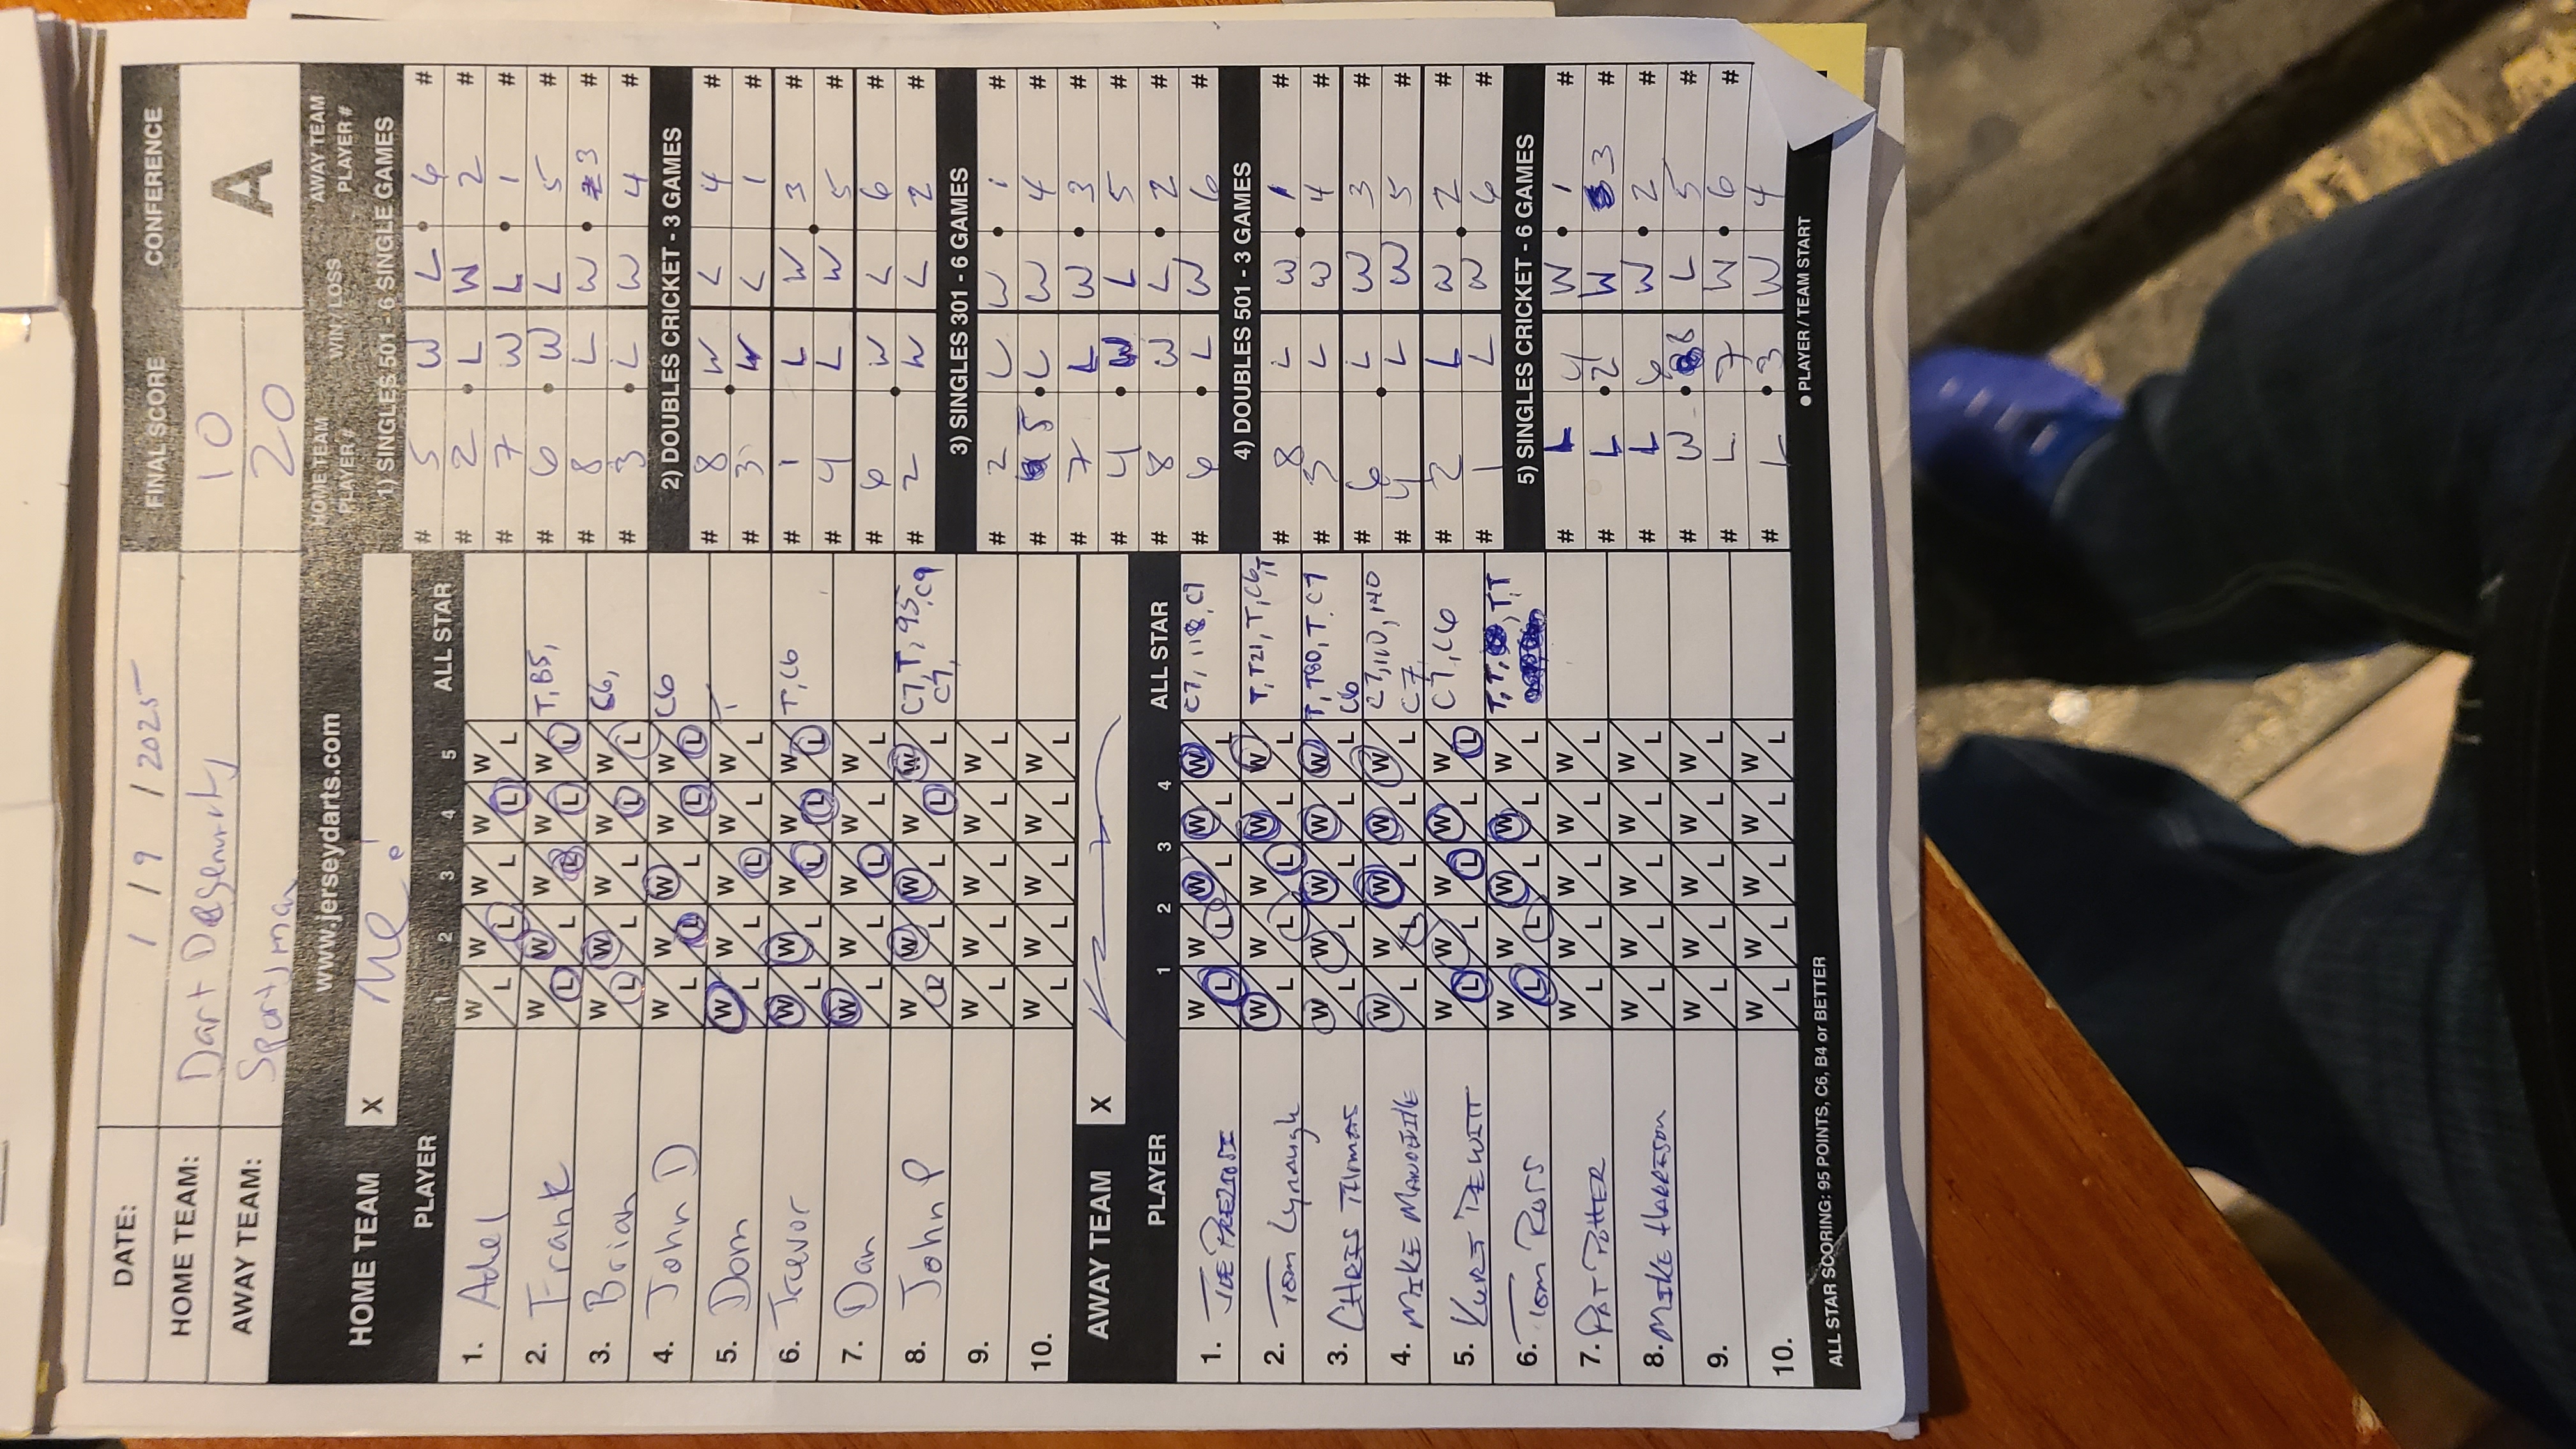 DATE: 1 / 9 / 2025
FINAL SCORE CONFERENCE
HOME TEAM: Dart 10
AWAY TEAM: Sportsman 20
A
www.jerseydarts.com
HOME TEAM X
PLAYER 1 2 3 4 5 ALL STAR
1. Adel W L W L W L W L W L
2. Frank W L W L W L W L W L T, B5,
3. Brian W L W L W L W L W L C6,
4. John D W L W L W L W L W L C6
5. Dom W L W L W L W L W L T
6. Trevor W L W L W L W L W L T, C6
7. Dan W L W L W L W L W L
8. John P W L W L W L W L W L C7, T, 95, C9
C7,
9. W L W L W L W L W L
10. W L W L W L W L W L
AWAY TEAM X
PLAYER 1 2 3 4 ALL STAR
1. JOE PREZIOSI W L W L W L W L W L C7, 118, C7
2. Tom Lynaugh W L W L W L W L W L T, T21, T, C6, T
3. CHRIS THOMAS W L W L W L W L W L T, T80, T, C7
C6
4. MIKE W L W L W L W L W L C7, 110, 140
C7
5. KURT DEWITT W L W L W L W L W L C7, C6
6. Tom ROSS W L W L W L W L W L T, T, T, T
7. PAT POTTER W L W L W L W L W L
8. MIKE HARRISON W L W L W L W L W L
9. W L W L W L W L W L
10. W L W L W L W L W L
ALL STAR SCORING: 95 POINTS, C6, B4 or BETTER
HOME TEAM PLAYER # WIN / LOSS AWAY TEAM PLAYER #
1) SINGLES 501 - 6 SINGLE GAMES
# 5 W L 6 #
# 2 L W 2 #
# 7 W L 1 #
# 6 W L 5 #
# 8 L W 3 #
# 3 L W 4 #
2) DOUBLES CRICKET - 3 GAMES
# 8 W L 4 #
# 3 W L 1 #
# 1 L W 3 #
# 4 L W 5 #
# 6 W L 6 #
# 2 W L 2 #
3) SINGLES 301 - 6 GAMES
# 2 L W 1 #
# 5 L W 4 #
# 7 L W 3 #
# 4 W L 5 #
# 8 W L 2 #
# 6 L W 6 #
4) DOUBLES 501 - 3 GAMES
# 8 L W 1 #
# 3 L W 4 #
# 6 L W 3 #
# 4 L W 5 #
# 2 L W 2 #
# 1 L W 6 #
5) SINGLES CRICKET - 6 GAMES
# L 4 W 1 #
# L 2 W 3 #
# L 6 W 2 #
# W 8 L 5 #
# L 7 W 6 #
# L 3 W 4
● PLAYER / TEAM START